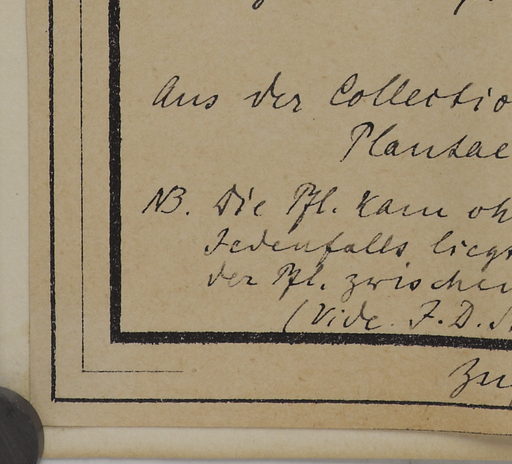 Aus der Collectio
Plantae
NB. Die Pfl. kam oh
Jedenfalls liegt
der Pfl. zwischen
(Vide. F. D.
Zu